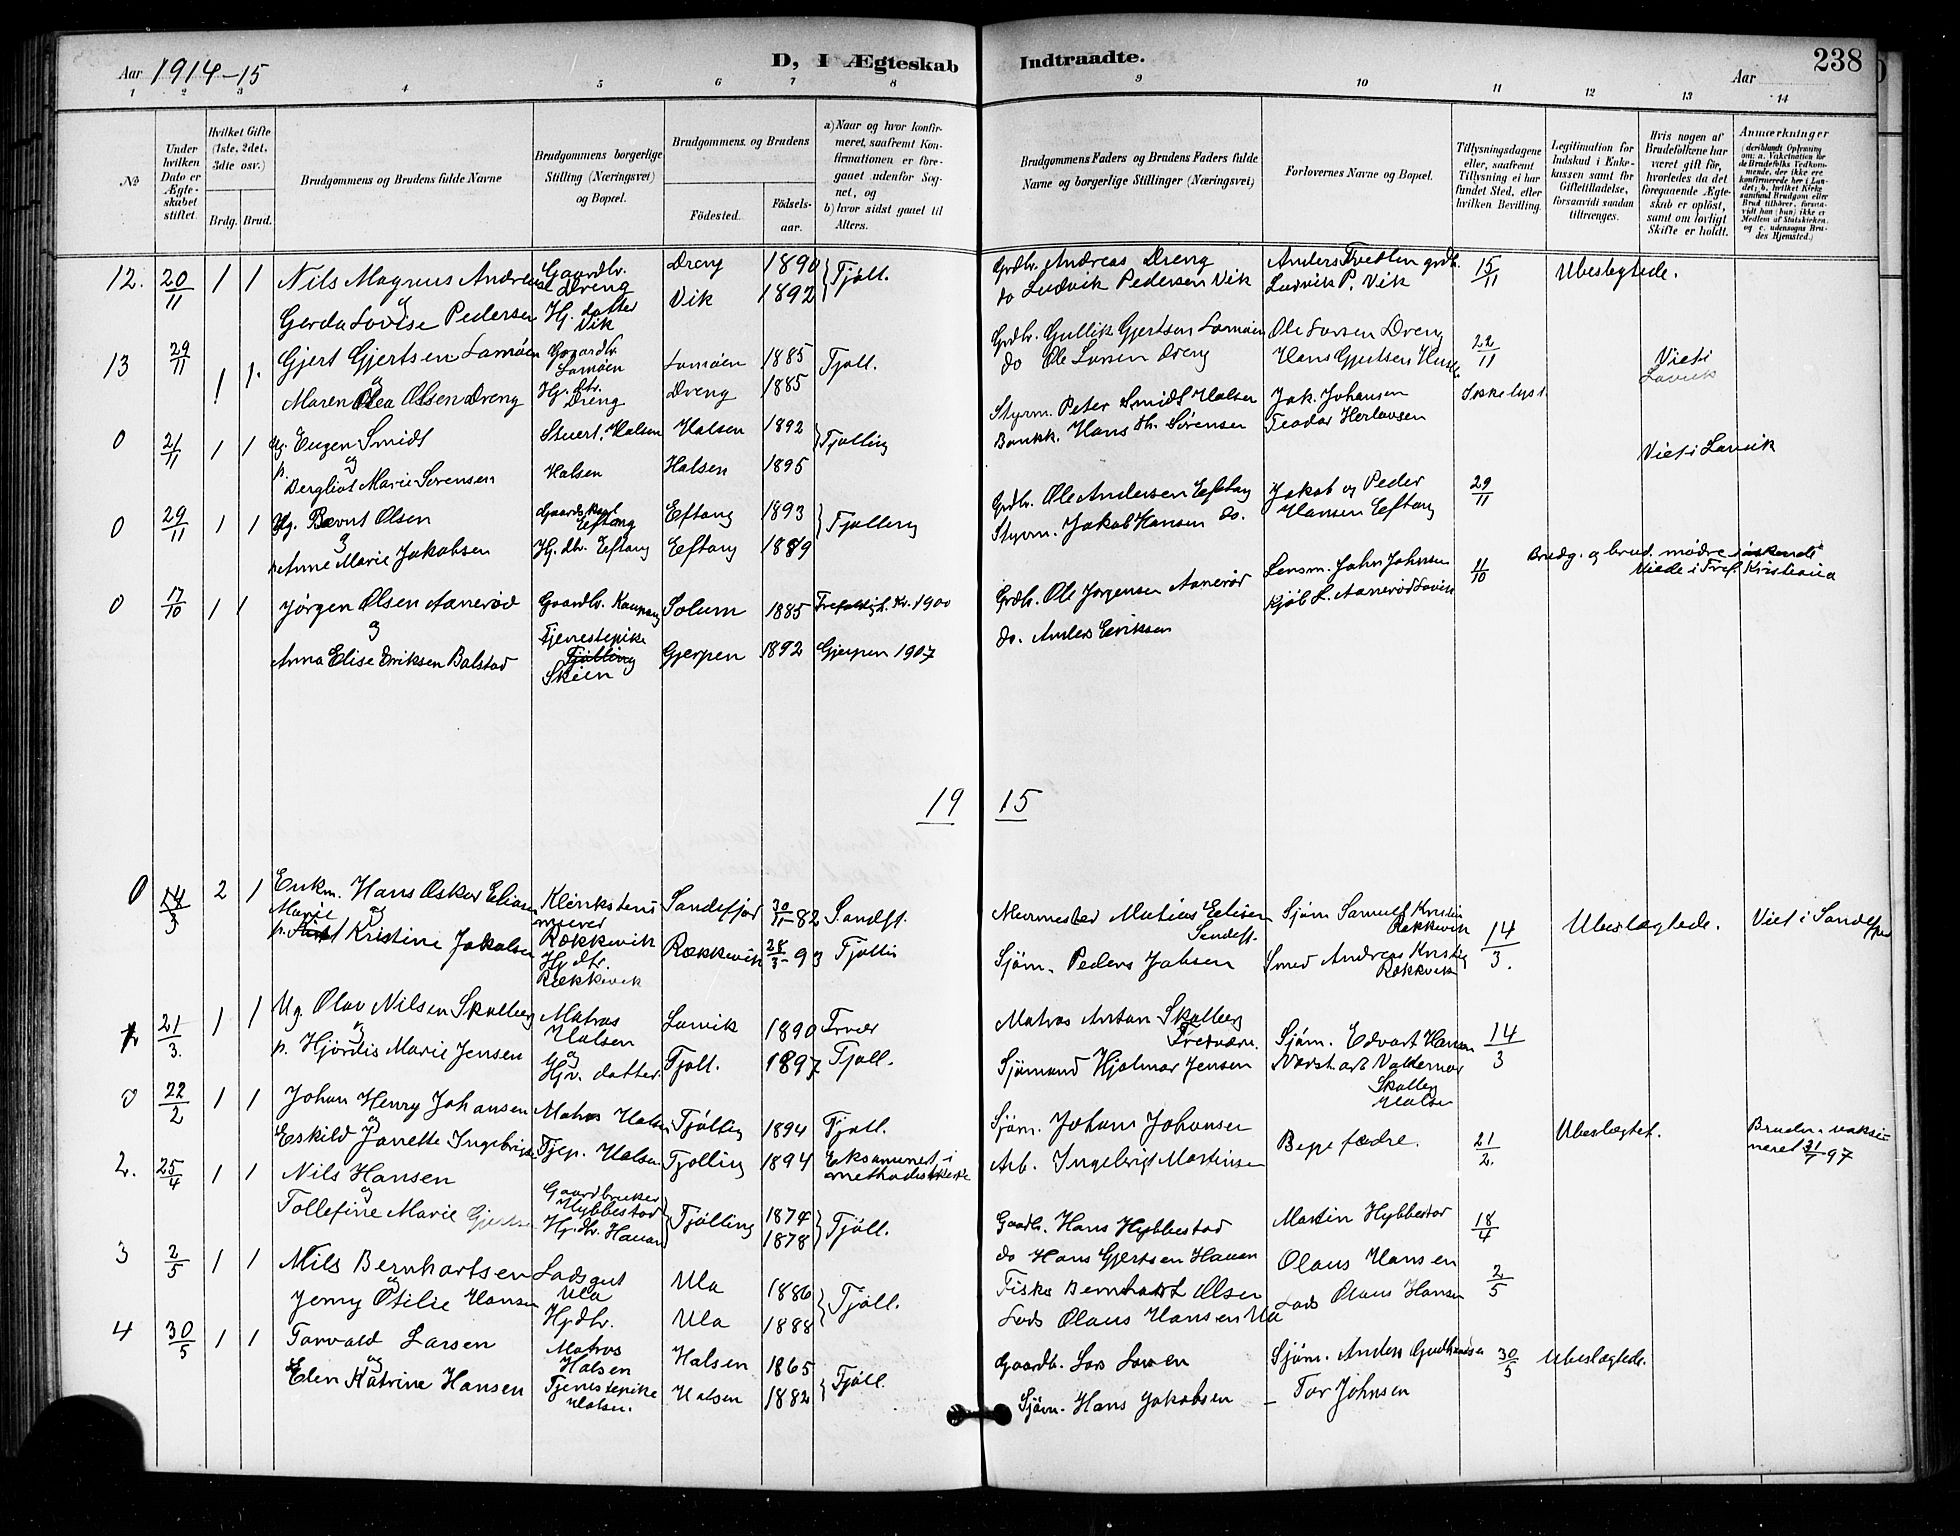 Aar 1914-15
D, I Ægteskab Indtraadte.
Aar
238
1 2 3 4 5 6 7 8 9 10 11 12 13 14
No
Under hvilken Dato er Ægteskabet stiftet.
Hvilket Gifte (1ste, 2det, 3die osv.)
Brdg. Brud.
Brudgommens og Brudens fulde Navne
Brudgommens borgerlige Stilling (Næringsvei) og Bopæl.
Brudgommens og Brudens
Fødested.
Fødselsaar.
a) Naar og hvor konfirmeret, saafremt Konfirmationen er foregaaet udenfor Sognet, og b) hvor sidst gaaet til Alters.
Brudgommens Faders og Brudens Faders fulde Navne og borgerlige Stillinger (Næringsvei)
Forlovernes Navne og Bopæl.
Tillysningsdagene eller, saafremt Tillysning ei har fundet Sted, efter hvilken Bevilling.
Legitimation for Indskud i Enkekassen samt for Giftetilladelse, forsaavidt saadan tiltrænges.
Hvis nogen af Brudefolkene har været gift før, hvorledes da det foregaaende Ægteskab er opløst, samt om lovligt Skifte er holdt.
Anmærkninger (deriblandt Oplysning om: a. Vakcination for de Brudefolks Vedkommende, der ikke ere konfirmerede her i Landet; b. hvilket Kirkesamfund Brudgom eller Brud tilhører, forsaavidt han (hun) ikke er Medlem af Statskirken, og c. udensogns Brudes Hjemsted.)
12. 20/11 1 1 Nils Magnus Andreas Gaardbr. Dreng Dreng 1890 Tjøll. Grdbr. Andreas Dreng Anders Tvedten grdb. 15/11 Ubeslegtede.
og Gerda Lovise Pedersen Hj. datter Vik Vik 1892 do Ludvik Pedersen Vik Ludvik P. Vik
13 29/11 1 1. Gjert Gjertsen Lamøen Gaardbr. Lamøen Lamøen 1885 Tjøll. Grdbr. Gullik Gjertsen Lamøen Ole Larsen Dreng 22/11 Viet i Larvik
og Maren Olea Olsen Dreng Hj. dtr. Dreng Dreng 1885 do Ole Larsen Dreng Hans Gjertsen
0 21/11 1 1 Ug. Eugen Smidt Stuert. Halsen Halsen 1892 Tjølling Styrm. Peter Smidt Halsen Jak. Johansen Ikke lyst Viet i Larvik
og p. Bergliot Marie Sørensen Halsen Halsen 1895 Bankk. Hans Th. Sørensen Teodor Herlovsen
0 29/11 1 1 Ug. Bernt Olsen Gaardskarl Eftang Eftang 1893 Tjølling Grdbr. Ole Andersen Eftang Jakob og Peder 29/11
og p. Anne Marie Jakobsen Hj. dtr. Eftang Eftang 1889 Styrm. Jakob Hansen do. Hansen Eftang
0 17/10 1 1 Jørgen Olsen Aanerød Gaardbr. Kaupang Solum 1885 Trefoldigh. Kr. 1900 Grdbr. Ole Jørgensen Aanerød Lensm. John Johnsen 11/10 Brudg. og brud. mødre Viede i Tref. Kristiania
og Anna Elise Eriksen Balstad Tjenestepike Tjølling Skien Gjerpen 1892 Gjerpen 1907 do. Anders Eriksen Kjøb L. Aanerød Larvik
19 15
0 14/3 2 1 Enkm. Hans Oskar Eliasen Klinkstensmurer Rækkevik Sandefjord 30/11-82 Sandefj. Murmester Matias Eliasen Sandefj. Sjøm Samuel Kristi Rækkevik 14/3. Ubeslægtede. Viet i Sandefjord
og p. Marie Kristine Jakobsen Hjdtr. Rækkevik Rækkevik 28/3-93 Tjøllin Sjøm. Peders Jakobsen Smed Andreas Kristi Rækkevik
1 21/3. 1 1 Ug. Olav Nilsen Skalberg Matros Halsen Larvik 1890 Matros Anton Skalberg Sjøm. Edvart Hansen 14/3
og p. Hjørdis Marie Jensen Hjv. datter. Tjøll. 1897 Tjøll. Sjømand Hjalmar Jensen Værst. arb Valdemar Skalberg Halsen
0 22/2 1 1 Johan Henry Johansen Matros Halsen Tjølling 1894 Tjøll. Sjøm. Johan Johansen Begge fædre. 21/2. Ubeslægtet. Bruden vaksineret 31/7 97
og Eskild Janette Ingebrigs Tjep. Halsen Tjølling 1894 Eksamineret i methodistkirke Arb. Ingebrigt Martinsen
2. 25/4 1 1 Nils Hansen Gaardbruker Hybbestad Tjølling 1874 Tjøll. Gaardb. Hans Hybbestad Martin Hybbestad 18/4
og Tollefine Marie Gjertsen Hj. dtr. Hauan 1878 do Hans Gjertsen Hauan Olaus Hansen
3 2/5 1 1 Nils Bernhartsen Lodsgut Ula Ula 1886 Tjøll. Fisker Bernhardt Olsen Lods Olaus Hansen 2/5
og Jenny Otilie Hansen Hjdtr. Ula 1888 Lods Olaus Hansen Ula
4 30/5 1 1 Torvald Larsen Matros Halsen Halsen 1865 Tjøll. Gaardb. Lars Larsen Sjøm. Anders Gudbrandsen 30/5 Ubeslægtede.
og Elen Katrine Hansen Tjenestepike Halsen. Halsen 1882 Sjøm. Hans Jakobsen - Tor Johnsen